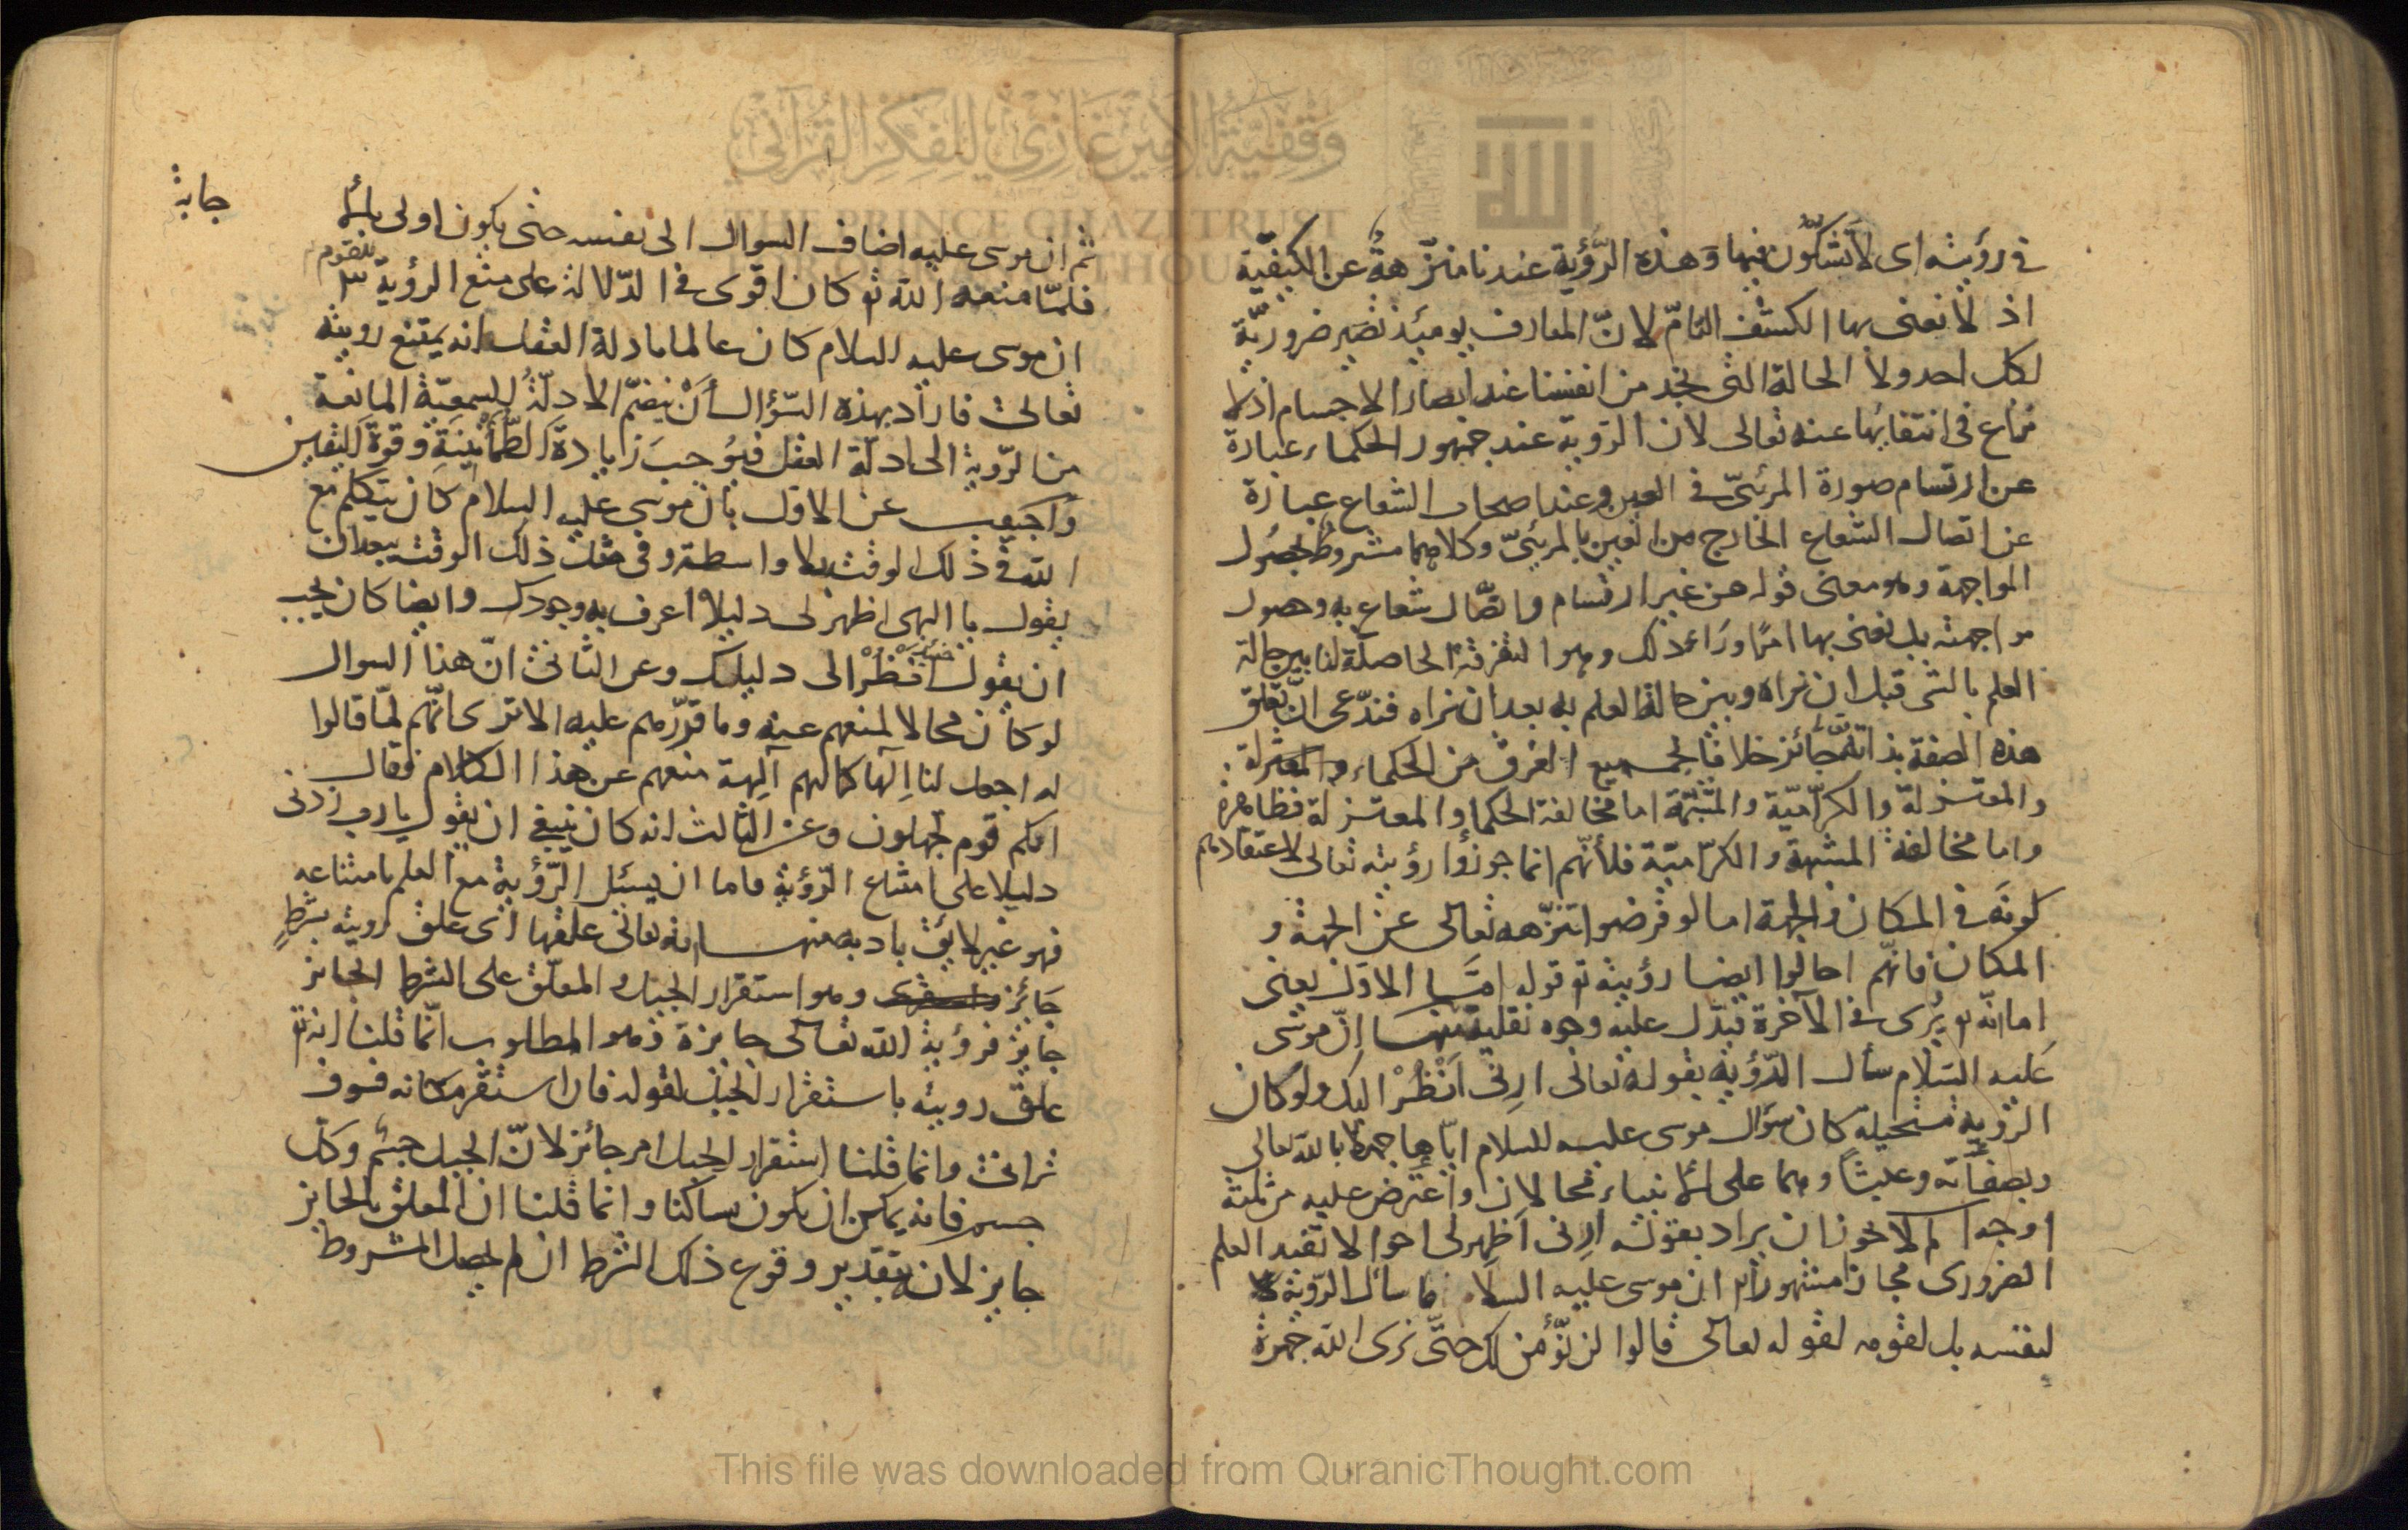 في رؤيته اى لا تشكّون فيها وهذه الرّؤية عندنا منزّهةٌ عن الكيفيّة
اذ لا نعنى بها الكشف التامّ لانّ المعارف يومئذ تصير ضروريّة
لكل احد ولا الحالة التى نجد من انفسنا عند ابصار الاجسام اذ لا
نزاع فى انتفائها عنه تعالى لان الرؤية عند جمهور الحكماء عبارة
عن ارتسام صورة المرئىّ فى العين وعند اصحاب الشعاع عبارة
عن اتصال الشعاع الخارج من العين بالمرئىّ وكلاهما مشروط بحصُول
المواجهة وهو معنى قوله من غير ارتسام واتصّال شعاع به وحصول
مواجهة بل نعنى بها امرًا وراء ذلك وهو التفرقة الحاصلة لنا بين حالة
العلم بالشى قبل ان نراه وبين حالة العلم به بعد ان نراه فندّعى انّ تعلق
هذه الصفة بذاته جائز خلافا لجميع الفرق من الحكماء
والمعتزلة والكرّاميّة والمشبّهة اما مخالفة الحكماء والمعتزلة فظاهرة
واما مخالفة المشبهة والكرّاميّة فلأنّهم انما جوزوا رؤيته تعالى لاعتقادهم
كونه فى المكان والجهة اما لو فرضوا تنزّهه تعالى عن الجهة و
المكان فانّهم احالوا ايضا رؤيته تع قوله امّا الاول يعنى
اما انّه تع يُرى فى الآخرة فيدّل عليه وجوه نقلية منها انّ موسى
عليه السّلام سأل الرّؤية بقوله تعالى ارِنى اَنْظُرْ اليك ولو كان
الرؤية مستحيلة كان سؤال موسى عليه السلام ايّاها جهلا بالله تعالى
وبصفاته وعبثاً وهما على الانبياء محالان واعترض عليه من ثلثة
اوجه ا لم لا يجوز ان يراد بقوله ارِنى اظهر لى احوالا تفيد العلم
الضرورى مجازا مشهورا ان موسى عليه السلام ما سأل الرّؤية
لنفسه بل لقومه لقوله تعالى قالوا لن نّؤمن لك حتّى نرى الله جهرة
ثم ان موسى عليه اضاف السوال الى نفسه حتى يكون اولى بالا
جابة
فلمّا منعه الله تع كان اقوى فى الدّلالة على منع الرؤية ٣
للقوم
ان موسى عليه السلام كان عالما بادلة العقل انه يمتنع رويته
تعالى فاراد بهذه السّؤال أنْ ينضمّ الادلّةُ السمعيّة المانعة
من الرّوية الى ادلّة العقل فيُوجبَ زايادة الطّمأنِينَةِ وقوة اليقين
واُجيب عن الاول بان موسى عليه السلام كان يتكلم مع
الله فى ذلك الوقت بلا واسطة وفى مثل ذلك الوقت يبعد ان
يقول يا الهى اظهر لى دليلا اعرف به وجودك وايضا كان يجب
ان يقول اَنْظُرْ الى دليلك وعن الثانى انّ هذا السوال
لو كان محالا لمنعهم عنه وما قرّرهم عليه الا ترى انّهم لمّا قالوا
له اجعل لنا اِلٓها كما لهم آلِهة منعهم عن هذا الكلام فقال
انكم قوم تجهلون وعن الثالث انه كان ينبغى ان يقول يا رب زدنى
دليلا على امتناع الرّؤية فاما ان يسئل الرّؤية مع العلم بامتناعه
فهو غير لايق بادبه منها انه تعالى علقها اى علق رويته بشرطٍ
جَائز وهو استقرار الجبل والمعلّق على الشرط الجايز
جايز فرؤية الله تعالى جايزة وهو المطلوب انّما قلنا انه تع
علق رويته باستقرار الجبل لقوله فان استقرّ مكانه فسوف
ترانى وانما قلنا استقرار الجبل امر جائز لانّ الجبل جسْم وكلّ
جسم فانه يمكن ان يكون ساكنا وانما قلنا ان المعلق بالجايز
جايز لان بتقدير وقوع ذلك الشرط ان لم يحصل المشروط
وقفية الأمير غازي للفكر القرآني
THE PRINCE GHAZI TRUST
This file was downloaded from QuranicThought.com